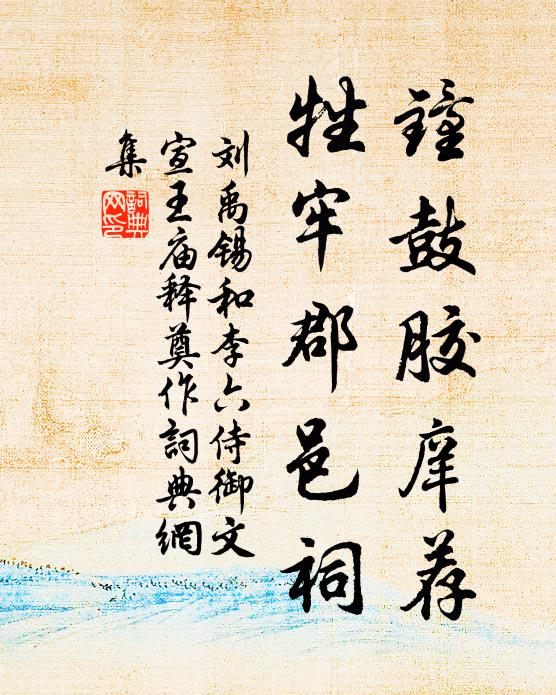 鐘鼓胶庠荐
牲牢郡邑祠
刘禹锡和李六侍御文
宣王庙释奠作詞典網
集
詞典網印